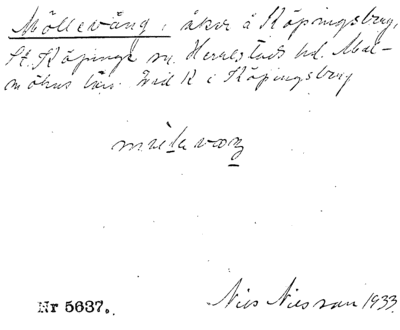 Möllevång, åker å Köpingsberg,
St. Köpinge sn. Herrestads hd. Mal-
möhus län. K i Köpingsberg
Nr 5637.
Nils Nilsson 1933.